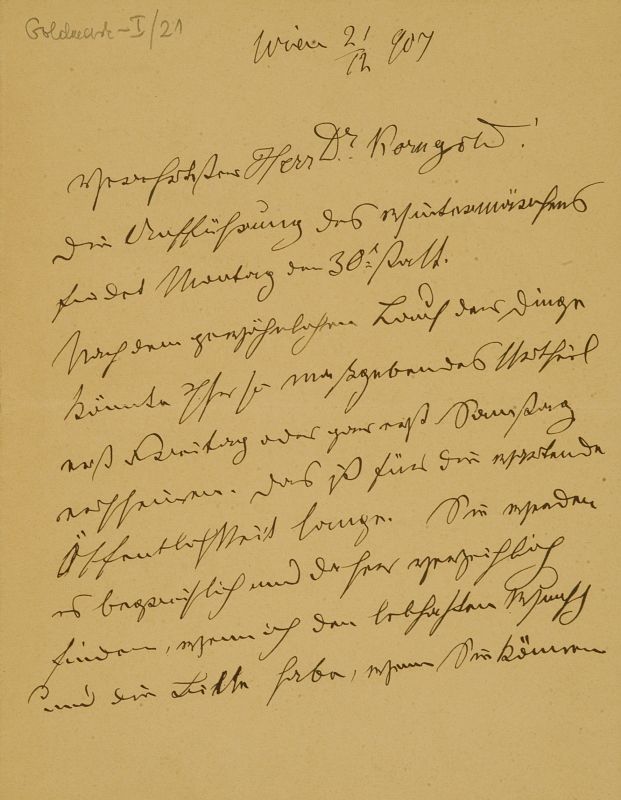 Goldmark - I/21
Wien 21/12 907
Verehrtester Herr Dr. Korngold!
Die Aufführung des Wintermärchens
findet Montag den 30t statt.
Nach dem gewöhnlichen Lauf der Dinge
könnte Ihr so maßgebendes Urtheil
erst Freitag oder gar erst Samstag
erscheinen. Das ist für die wartende
Öffentlichkeit lange. Sie werden
es begreiflich und daher verzeihlich
finden, wenn ich den lebhaften Wunsch
und die Bitte habe, wenn Sie können